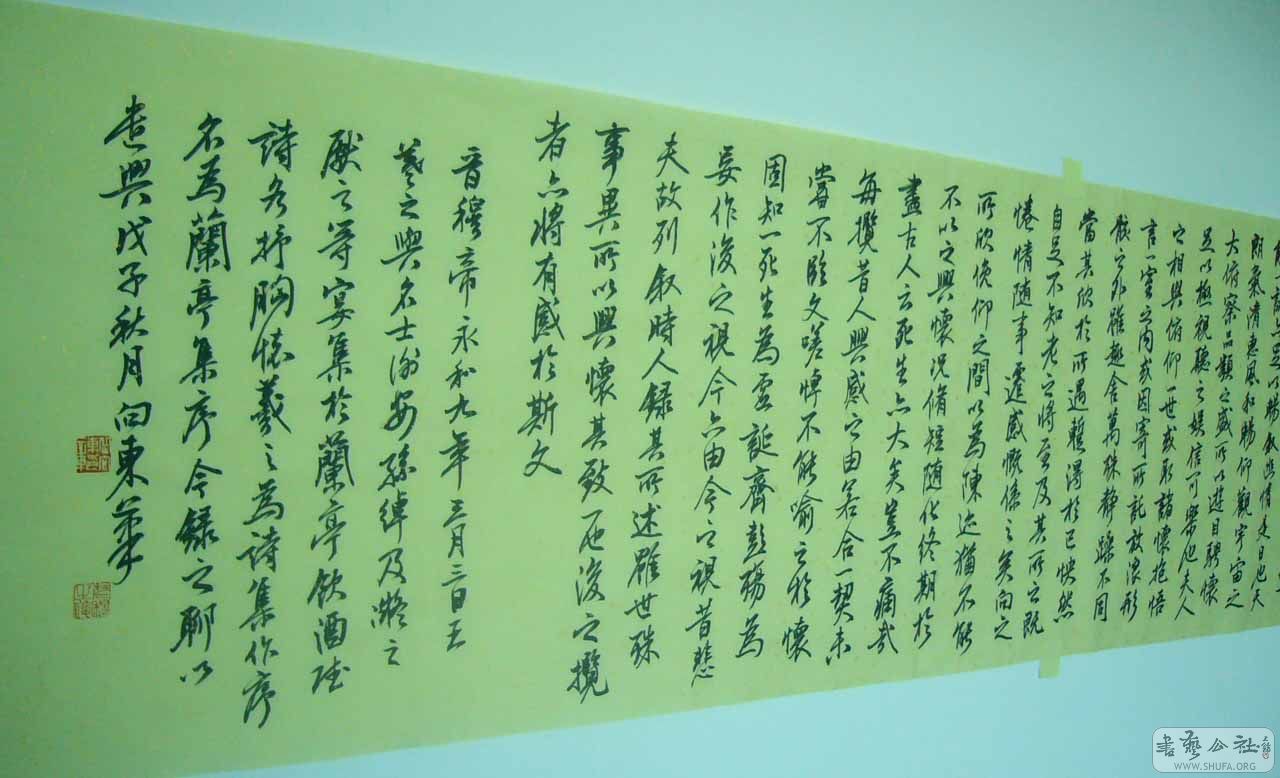 觴一詠亦足以暢叙幽情是日也天
朗氣清惠風和暢仰觀宇宙之
大俯察品類之盛所以遊目騁懷
足以極視聽之娱信可樂也夫人
之相與俯仰一世或取諸懷抱悟
言一室之内或因寄所託放浪形
骸之外雖趣舍萬殊静躁不同
當其欣於所遇暫得於己快然
自足不知老之將至及其所之既
惓情隨事遷感慨係之矣向之
所欣俛仰之間以為陳迹猶不能
不以之興懷況脩短隨化終期於
盡古人云死生亦大矣豈不痛哉
每攬昔人興感之由若合一契未
嘗不臨文嗟悼不能喻之於懷
固知一死生為虛誕齊彭殤為
妄作後之視今亦由今之視昔悲
夫故列叙時人録其所述雖世殊
事異所以興懷其致一也後之攬
者亦將有感於斯文
晉穆帝永和九年三月三日王
羲之與名士謝安孫綽及凝之
獻之等宴集於蘭亭飲酒賦
詩各抒胸懷羲之為詩集作序
名為蘭亭集序今録之聊以
遣興戊子秋月向東筆
書藝公社
WWW.SHUFA.ORG